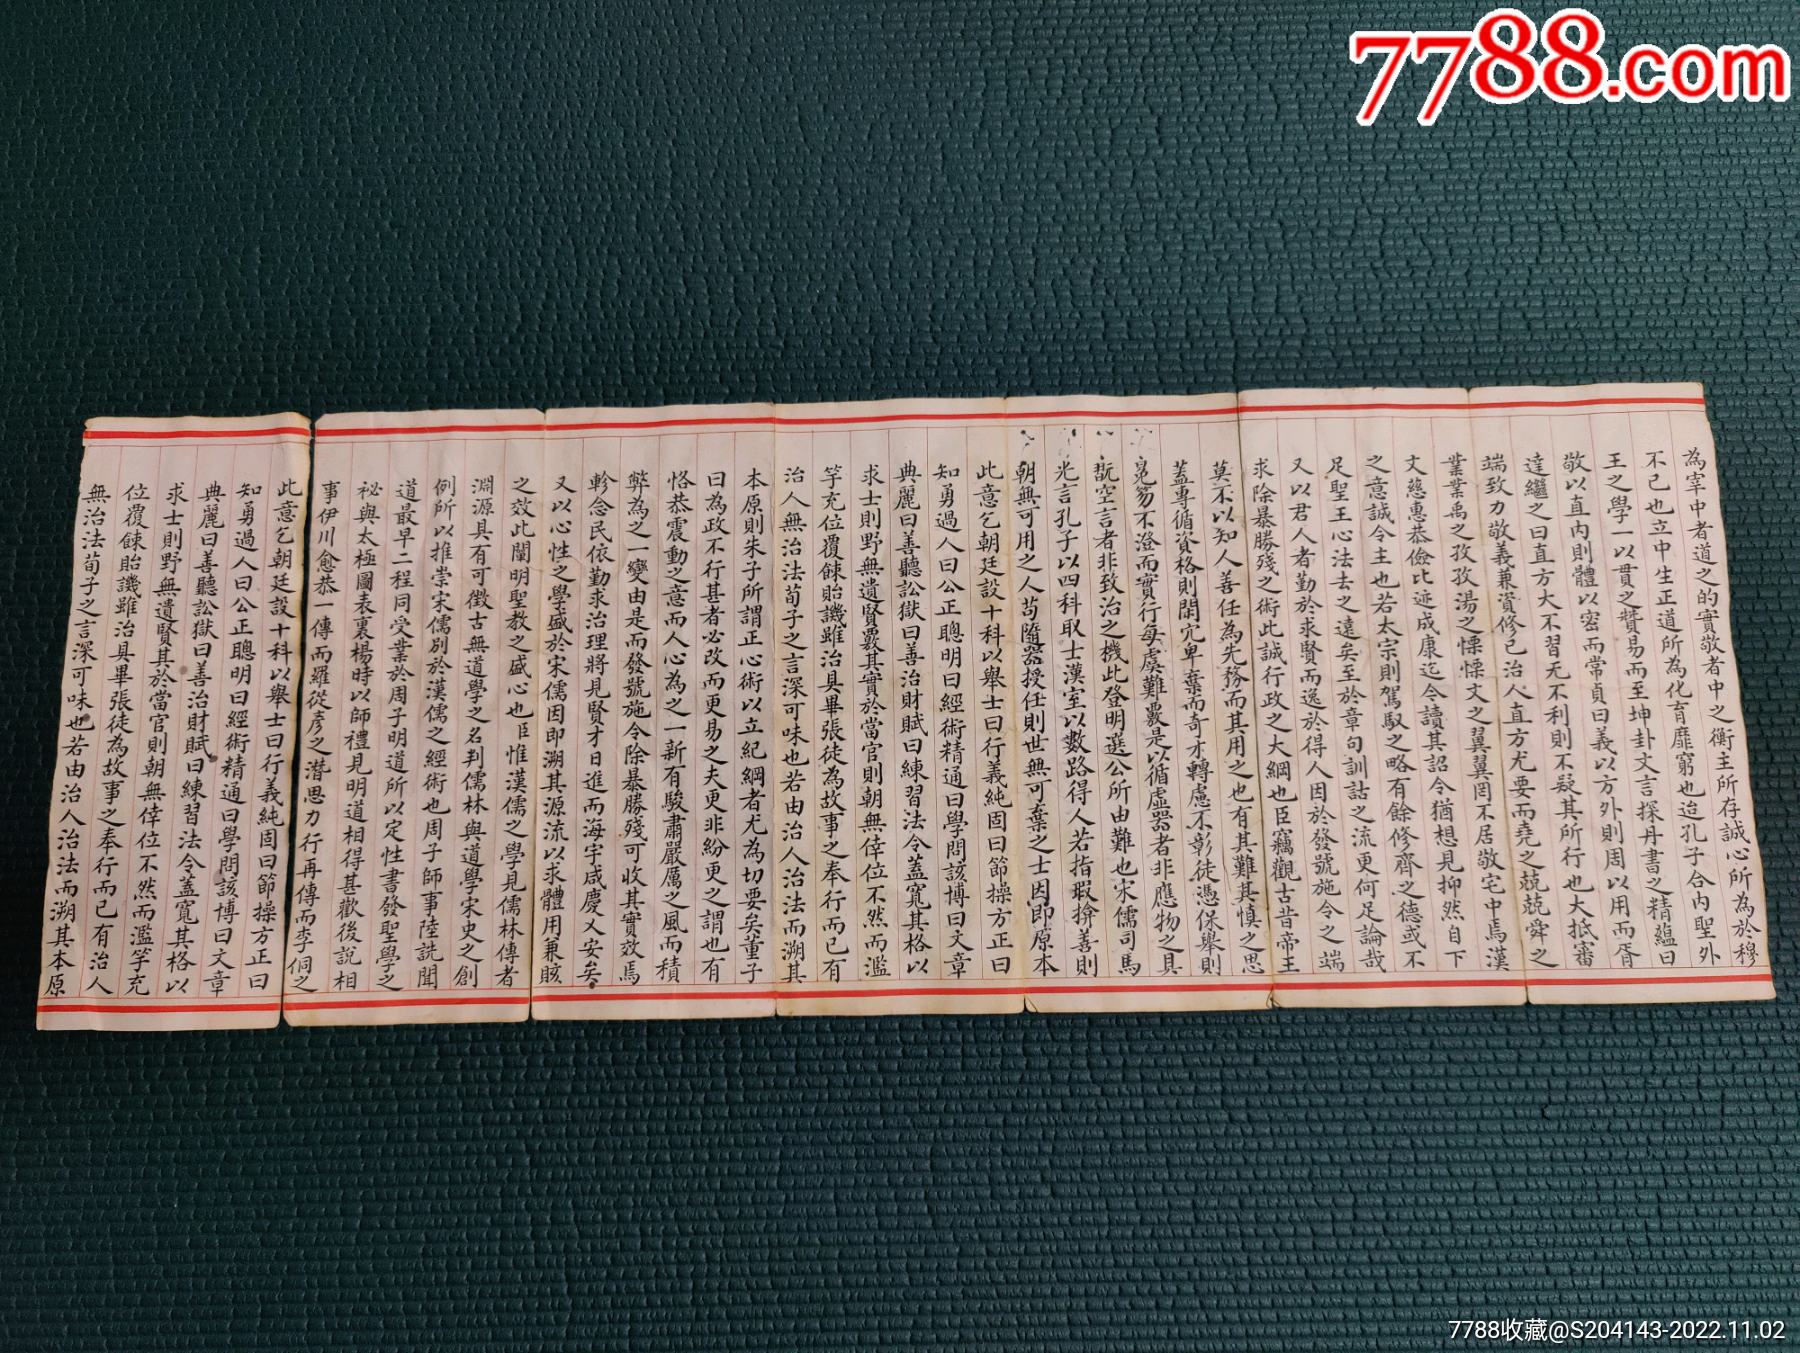 7788.com
為宰中者道之的實敬者中之衡主所存誠心所為於穆
不已也立中生正道所為化育靡窮也迨孔子合內聖外
王之學一以貫之贊易而至坤卦文言探丹書之精蘊曰
敬以直內則體以密而常貞曰義以方外則周以用而胥
達繼之曰直方大不習无不利則不疑其所行也大抵審
端致力敬義兼資修己治人直方尤要而堯之兢兢舜之
業業禹之孜孜湯之慄慄文之翼翼罔不居敬宅中焉漢
文慈惠恭儉比迹成康迄今讀其詔令猶想見抑然自下
之意誠令主也若太宗則駕馭之略有餘修齊之德或不
足聖王心法去之遠矣至於章句訓詁之流更何足論哉
又以君人者勤於求賢而逸於得人因於發號施令之端
求除暴勝殘之術此誠行政之大綱也臣竊觀古昔帝王
莫不以知人善任為先務而其用之也有其難其慎之思
蓋專循資格則閑宂卑棄而奇才轉慮不彰徒憑保舉則
冕笏不澄而實行每虞難覈是以循虛器者非應物之具
翫空言者非致治之機此登明選公所由難也宋儒司馬
光言孔子以四科取士漢室以數路得人若指瑕揜善則
朝無可用之人苟隨器授任則世無可棄之士因即原本
此意乞朝廷設十科以舉士曰行義純固曰節操方正曰
知勇過人曰公正聰明曰經術精通曰學問該博曰文章
典麗曰善聽訟獄曰善治財賦曰練習法令蓋寬其格以
求士則野無遺賢覈其實於當官則朝無倖位不然而濫
竽充位覆餗貽譏雖治具畢張徒為故事之奉行而已有
治人無治法荀子之言深可味也若由治人治法而溯其
本原則朱子所謂正心術以立紀綱者尤為切要矣董子
曰為政不行甚者必改而更易之夫更非紛更之謂也有
恪恭震動之意而人心為之一新有駿肅嚴厲之風而積
弊為之一變由是而發號施令除暴勝殘可收其實效焉
軫念民依勤求治理將見賢才日進而海宇咸慶乂安矣
又以心性之學盛於宋儒因即溯其源流以求體用兼賅
之效此闡明聖教之盛心也臣惟漢儒之學見儒林傳者
淵源具有可徵古無道學之名判儒林與道學宋史之創
例所以推崇宋儒別於漢儒之經術也周子師事陸詵聞
道最早二程同受業於周子明道所以定性書發聖學之
祕與太極圖表裏楊時以師禮見明道相得甚歡後說相
事伊川愈恭一傳而羅從彥之潛思力行再傳而李侗之
此意乞朝廷設十科以舉士曰行義純固曰節操方正曰
知勇過人曰公正聰明曰經術精通曰學問該博曰文章
典麗曰善聽訟獄曰善治財賦曰練習法令蓋寬其格以
求士則野無遺賢其於當官則朝無倖位不然而濫竽充
位覆餗貽譏雖治具畢張徒為故事之奉行而已有治人
無治法荀子之言深可味也若由治人治法而溯其本原
7788收藏@S204143-2022.11.02